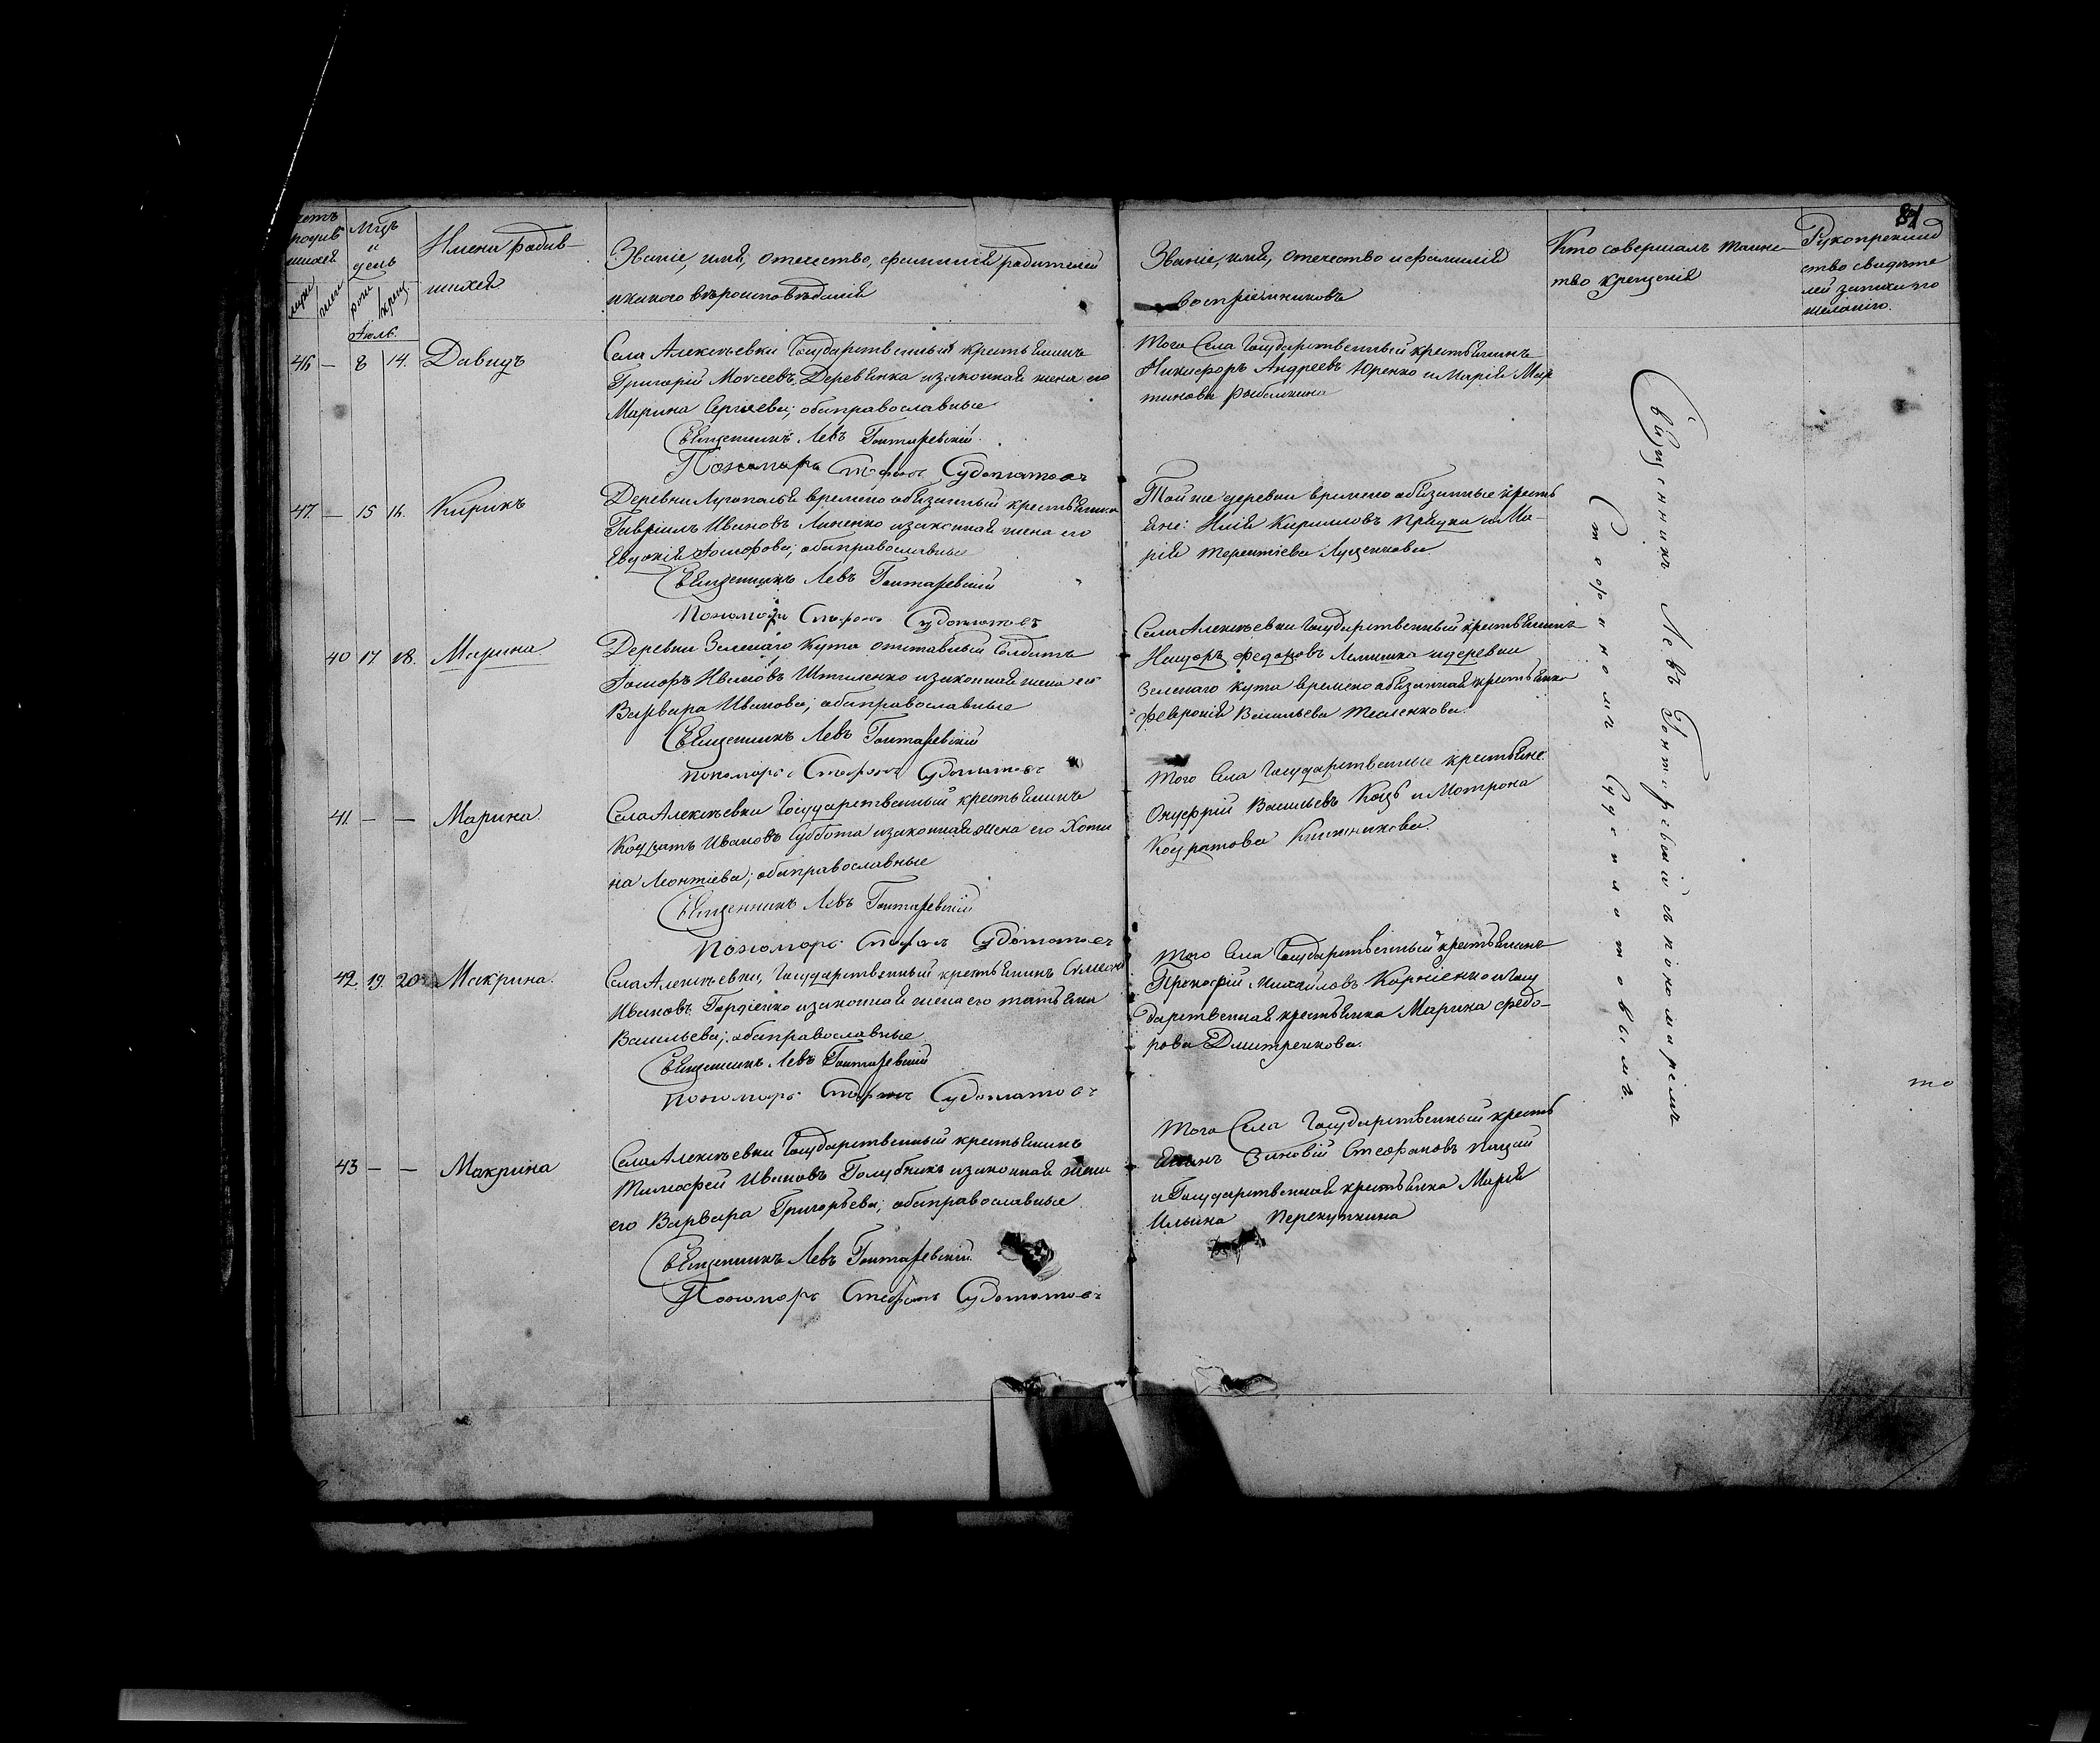 81
Счетъ родившихся
Мцъ и день
Имена родившихся
Званіе, имя, отечество, фамилія родителей
и какого вѣроисповѣданія
Званіе, имя, отечество и фамилія
воспріемниковъ
Кто совершалъ таинство крещенія
Рукоприкладство свидѣтелей записи по желанію.
Іюль.
46 — 8 14. Давидъ
Села Алексѣевки Государственный крестьянинъ
Григорій Моисеевъ Деревянка и законная жена его
Марина Сергіева; оба православные
Священникъ Левъ Гонтаревскій.
Пономарь Стефанъ
Того Села Государственный крестьянинъ
Никифоръ Андреевъ Юренко и Марія Мар
тинова Рыбалкина
47. — 15 16. Кирикъ
Деревни временно обязанный крестьянинъ
Гавріилъ Ивановъ и законная жена его
Евдокія Іосифова; оба православные
Священникъ Левъ Гонтаревскій
Пономарь Стефанъ
Той же деревни временно обязанные кресть
яне: Илія Кирилловъ и Ма-
рія Терентіева Луценкова
40 17 18. Марина
Деревни Зеленаго Кута отставный Солдатъ
Іосифъ Ивановъ и законная жена его
Варвара Иванова; оба православные
Священникъ Левъ Гонтаревскій
Пономарь Стефанъ
Села Алексѣевки Государственный крестьянинъ
Федоровъ и деревни
Зеленаго Кута временно обязанная крестьянка
Февронія Васильева
41. — — Марина
Села Алексѣевки Государственный крестьянинъ
Кодратъ Ивановъ Суббота и законная жена его Хоти
на Леонтіева; оба православные
Священникъ Левъ Гонтаревскій
Пономарь Стефанъ
Того Села Государственные крестьяне:
Онуфрій Васильевъ Коцъ и Мотрона
Кодратова
42. 19. 20. Макрина.
Села Алексѣевки, Государственный крестьянинъ Симеонъ
Ивановъ Гордіенко и законная жена его Татьяна
Васильева; оба православные
Священникъ Левъ Гонтаревскій
Пономарь Стефанъ
Того Села Государственный крестьянинъ
Прокофій Михайловъ Корніенко и Госу
дарственная крестьянка Марина Федо-
рова Дмитренкова.
43 — — Макрина
Села Алексѣевки Государственный крестьянинъ
Тимофей Ивановъ Голубникъ и законная жена
его Варвара Григорьева; оба православные
Священникъ Левъ Гонтаревскій.
Пономарь Стефанъ
Того Села Государственный кресть
янинъ Зиновій Стефановъ
и Государственная крестьянка Марія
Ильина Перекупкина
Священникъ Левъ Гонтаревскій съ пономаремъ
Стефаномъ
то